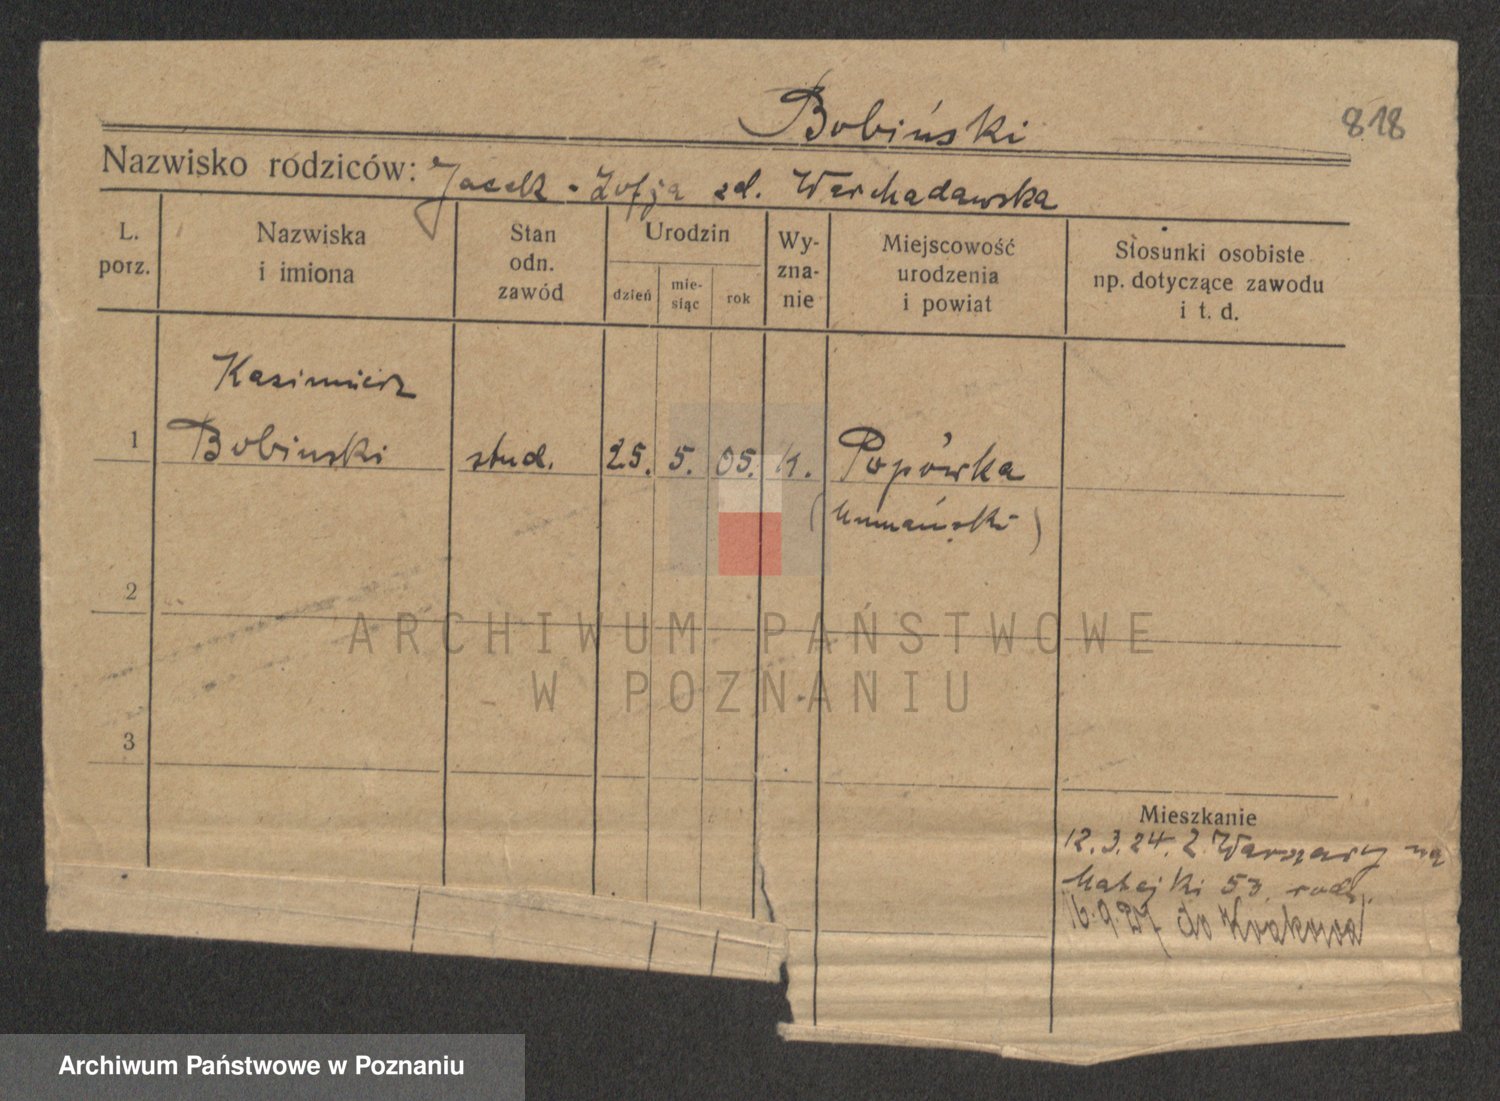 Bobiński
818
Nazwisko rodziców: Jacek - Zofja zd. Warchadawska
L. porz.
Nazwiska i imiona
Stan odn. zawód
Urodzin
dzień
mie-siąc
rok
Wy-zna-nie
Miejscowość urodzenia i powiat
Stosunki osobiste np. dotyczące zawodu i t. d.
Kazimierz
1 Bobinski stud. 25. 5. 05. k. Popówka
(Humański)
2
ARCHIWUM PAŃSTWOWE
W POZNANIU
3
Mieszkanie
12.3.24. z Warszawy na
Matejki 53. rodz.
16.9.27 do Krakowa
Archiwum Państwowe w Poznaniu